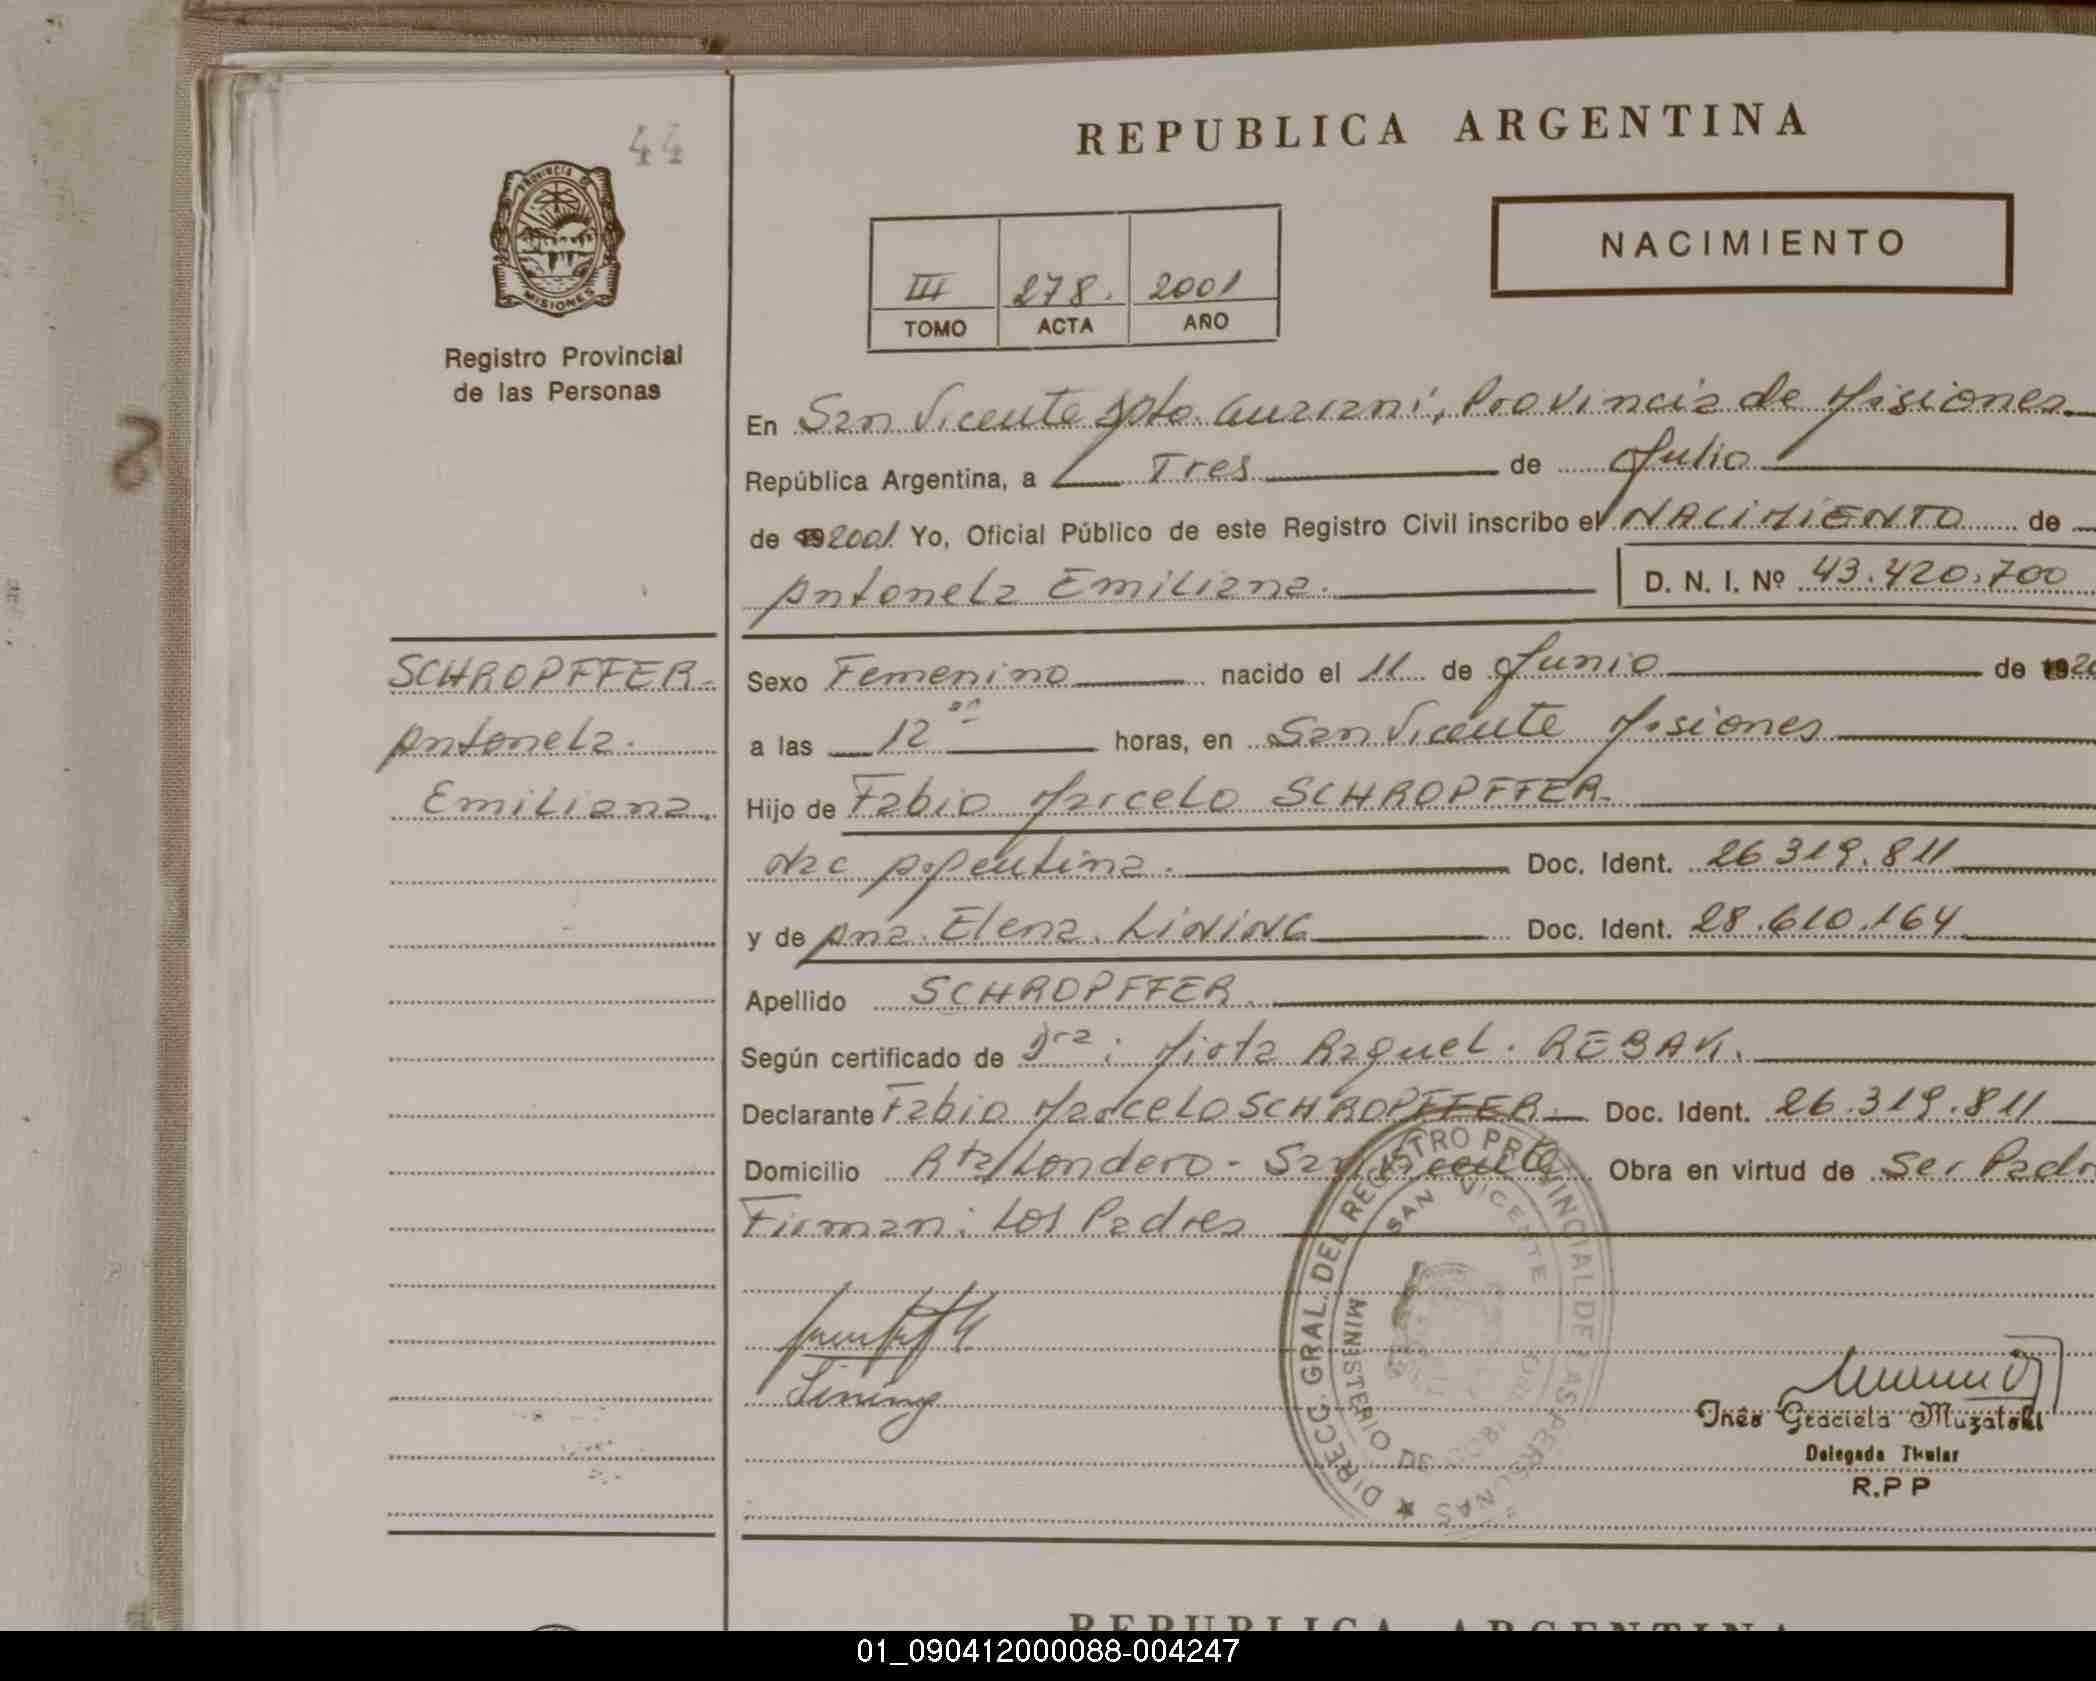 44
REPUBLICA ARGENTINA
PROVINCIA DE
MISIONES
Registro Provincial
de las Personas
NACIMIENTO
III 278. 2001
TOMO ACTA AÑO
En San Vicente Dpto. Guarani, Provincia de Misiones
República Argentina, a Tres de Julio
de 19 2001. Yo, Oficial Público de este Registro Civil inscribo el NACIMIENTO de
Antonela Emiliana. D. N. I. Nº 43.420.700
SCHROPFFER
Antonela.
Emiliana.
Sexo Femenino nacido el 11 de Junio de 19 20
a las 12 horas, en San Vicente Misiones
Hijo de Fabio Marcelo SCHROPFFER.
Nac Argentina. Doc. Ident. 26 319.811
y de Ana. Elena. LINING Doc. Ident. 28.610.164
Apellido SCHROPFFER.
Según certificado de Dra: Mirta Raquel. REBAK.
Declarante Fabio Marcelo SCHROPFFER. Doc. Ident. 26.319.811
Domicilio Rta/Londero - San Vicente Obra en virtud de Ser Padr
Firman: Los Padres
Lining
DIRECC. GRAL. DEL REGISTRO PROVINCIAL DE LAS PERSONAS
SAN VICENTE
MINISTERIO DE
Inés Graciela Muzatski
Delegada Titular
R.P P
REPUBLICA ARGENTINA
01_090412000088-004247